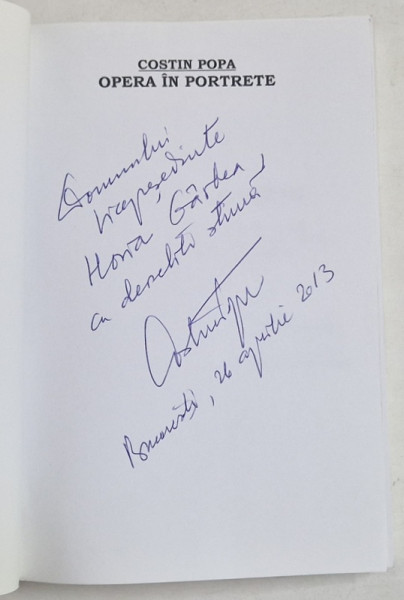 COSTIN POPA
OPERA ÎN PORTRETE
Domnului
vicepreşedinte
Horia Gârbea,
cu deosebită stimă
Costin Popa
Bucureşti, 26 aprilie 2013